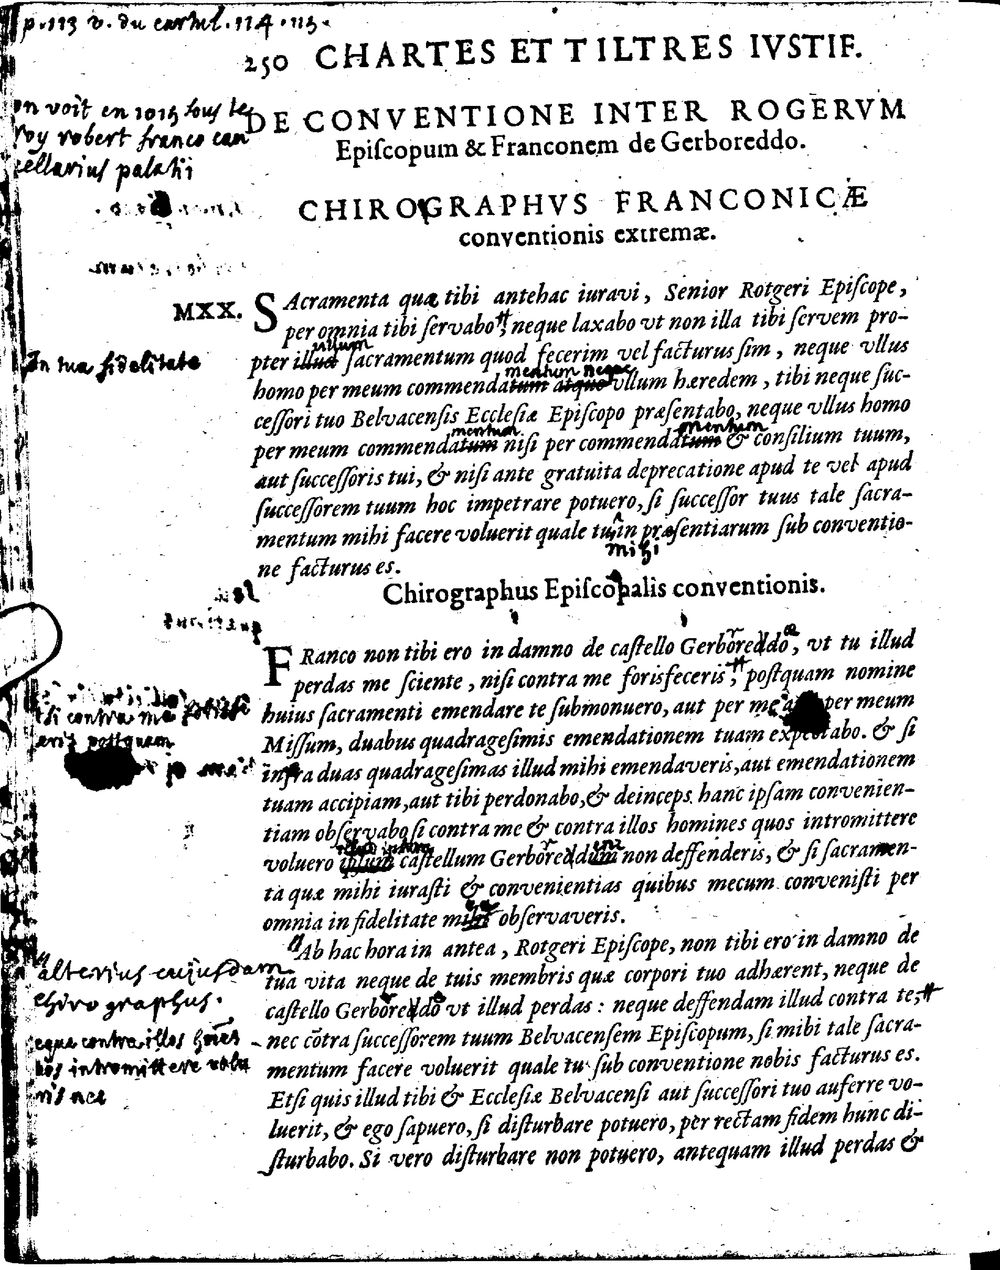 p. 113 v. du cartul. 114. 115.
250 CHARTES ET TILTRES IVSTIF.
on voit en 1015 sous le
roy robert franco can
cellarius palatii
DE CONVENTIONE INTER ROGERVM
Epiſcopum & Franconem de Gerboreddo.
CHIROGRAPHVS FRANCONICÆ
conventionis extremæ.
MXX.
SAcramenta quæ tibi antehac iuravi, Senior Rotgeri Epiſcope,
per omnia tibi ſervabo, neque laxabo vt non illa tibi ſervem pro-
In tua fidelitate
illum
pter illud ſacramentum quod fecerim vel facturus ſim, neque vllus
mentum neque
homo per meum commendatum atque vllum hæredem, tibi neque ſuc-
ceſſori tuo Belvacenſis Eccleſiæ Epiſcopo præſentabo, neque vllus homo
mentum mentum
per meum commendatum niſi per commendatum & conſilium tuum,
aut ſucceſſoris tui, & niſi ante gratuita deprecatione apud te vel apud
ſucceſſorem tuum hoc impetrare potuero, ſi ſucceſſor tuus tale ſacra-
mentum mihi facere voluerit quale tu in præſentiarum ſub conventio-
mihi
ne facturus es.
Chirographus Epiſcopalis conventionis.
FRanco non tibi ero in damno de caſtello Gerboreddo, vt tu illud
perdas me ſciente, niſi contra me forisfeceris, poſtquam nomine
huius ſacramenti emendare te ſubmonuero, aut per me aut per meum
Miſſum, duabus quadrageſimis emendationem tuam expectabo. & ſi
infra duas quadrageſimas illud mihi emendaveris, aut emendationem
tuam accipiam, aut tibi perdonabo, & deinceps hanc ipſam convenien-
tiam obſervabo ſi contra me & contra illos homines quos intromittere
voluero ipſum caſtellum Gerboreddum non deffenderis, & ſi ſacramen-
ta quæ mihi iuraſti & convenientias quibus mecum conveniſti per
omnia in fidelitate mihi obſervaveris.
si contra me
eris postquam
Ab hac hora in antea, Rotgeri Epiſcope, non tibi ero in damno de
tua vita neque de tuis membris quæ corpori tuo adhærent, neque de
caſtello Gerboreddo vt illud perdas: neque deffendam illud contra te,
nec cõtra ſucceſſorem tuum Belvacenſem Epiſcopum, ſi mihi tale ſacra-
mentum facere voluerit quale tu ſub conventione nobis facturus es.
Etſi quis illud tibi & Eccleſiæ Belvacenſi aut ſucceſſori tuo auferre vo-
luerit, & ego ſapuero, ſi diſturbare potuero, per rectam fidem hunc di-
ſturbabo. Si vero diſturbare non potuero, antequam illud perdas &
alterius cujusdam
chirographus.
eque contra illos hoies
uos intromittere volu
ris nec